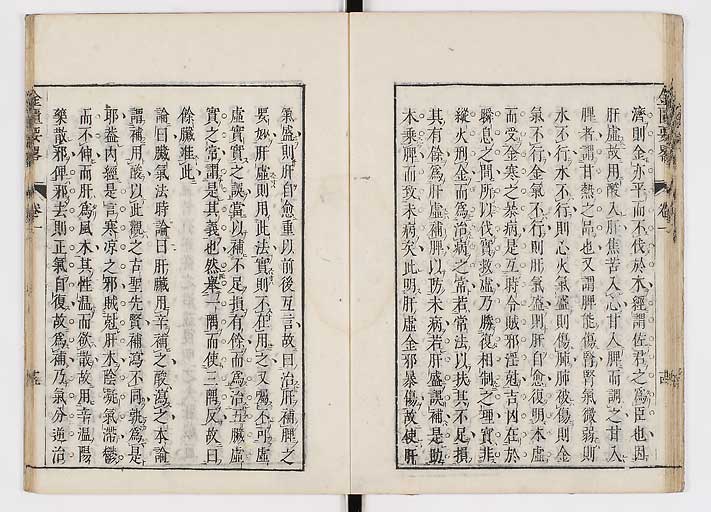 濟則金亦平而不伐於木經謂佐君之為臣也因
肝虛故用酸入肝焦苦入心甘入脾而調之甘入
脾者謂甘熱之品也又謂脾能傷腎腎氣微弱則
水不行水不行則心火氣盛則傷肺肺被傷則金
氣不行金氣不行則肝氣盛則肝自愈復明木虛
而受金寒之暴病是互時令賊邪淫尅吉凶在於
瞬息之間所以伐實救虛乃勝復相制之理實非
縱火刑金而為治病之常若常法以扶其不足損
其有餘為肝虛補脾以防未病若肝盛誤補是助
木乘脾而致未病矣此明肝虛金邪暴傷故使肝
金匱要畧
卷一
氣盛則肝自愈重以前後互言故曰治肝補脾之
要妙肝虛則用此法實則不在用之又囑不可虛
虛實實之誤當以補不足損有餘而為治五臟虛
實之常謂是其義也然舉一隅而使三隅反故曰
餘臟准此
論曰臟氣法時論曰肝臟用辛補之酸瀉之本論
謂補用酸以此觀之古聖先賢補瀉不同孰為是
耶葢內經是言寒凉之邪賊尅肝木陰凝氣滯鬱
而不伸而肝為風木其性溫而欲散故用辛溫陽
藥散邪俾邪去則正氣自復故為補乃氣分逆治
金匱要畧
卷一